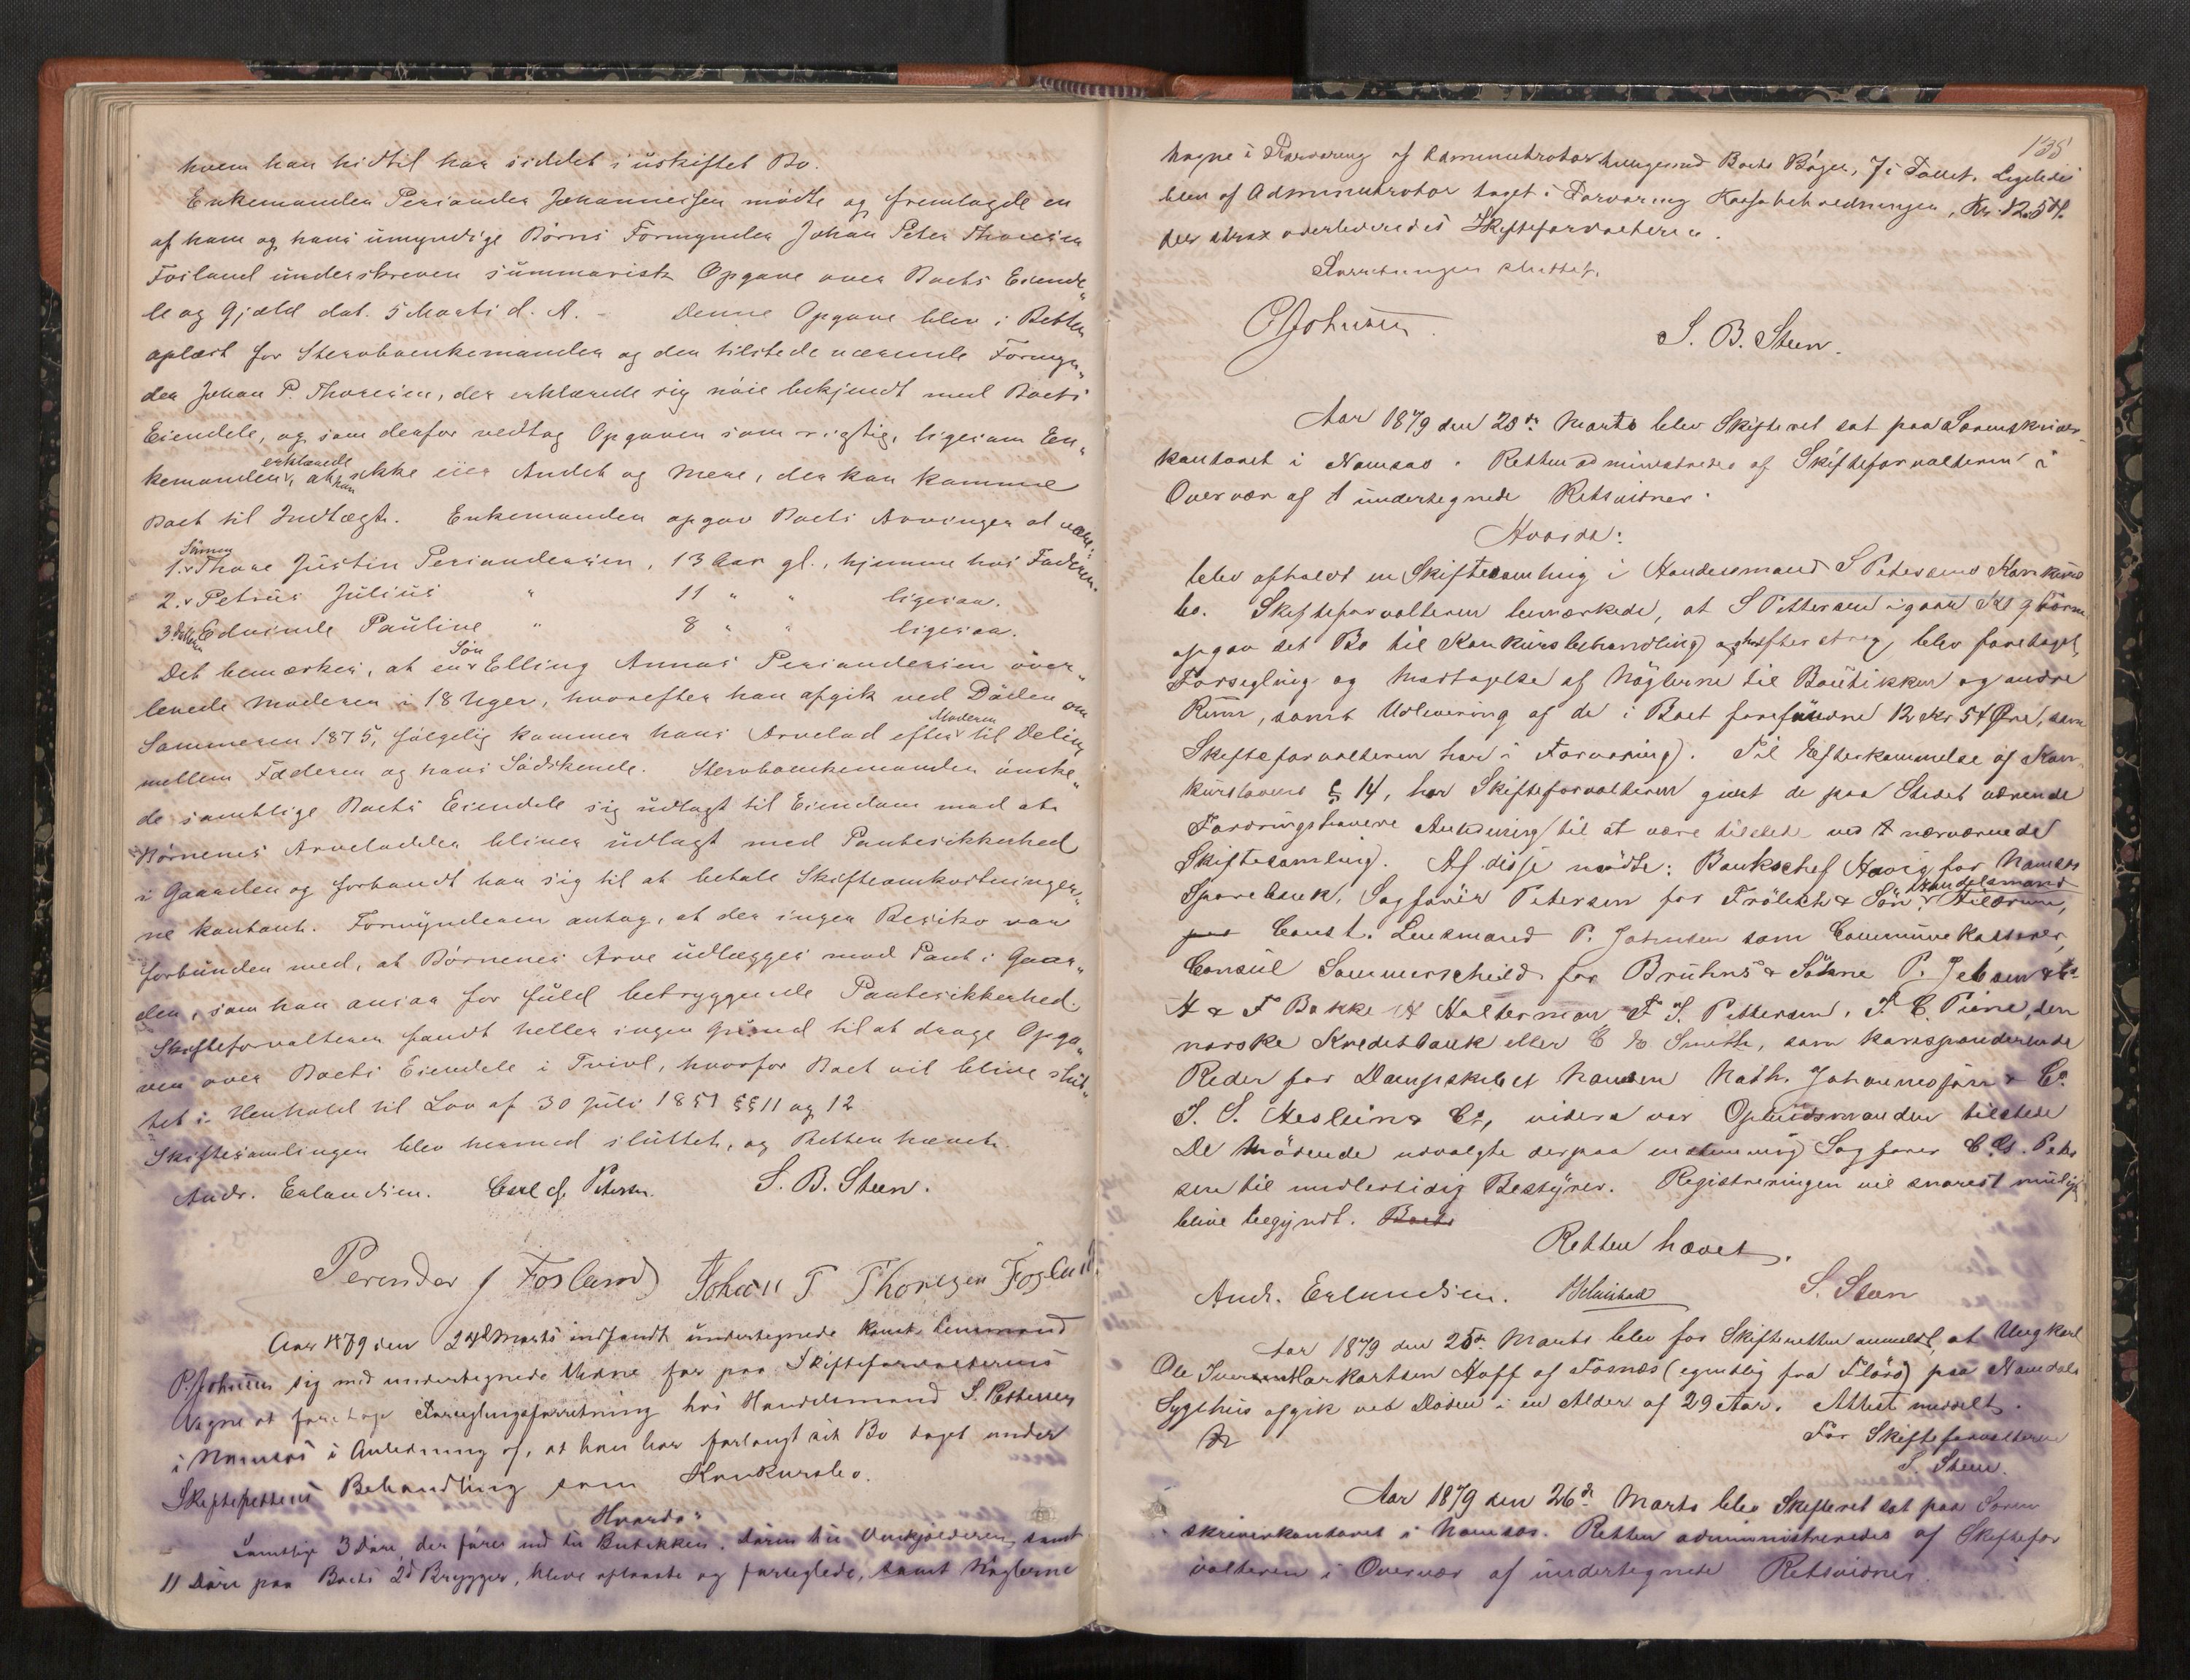 hvem han hidtil har siddet i uskiftet Bo.
Enkemanden Periander Johannessen mødte og fremlagde en
af ham og hans umyndige Børns Formynder Johan Peter Thoresen
Fosland underskreven summarisk Opgave over Boets Eiende„
le og Gjæld dat. 5 Marts d. A. – Denne Opgave blev i Retten
oplæst for Stervboenkemanden og den tilstedeværende Formyn„
der Johan P. Thoresen, der erklærede sig nøie bekjendt med Boets
Eiendele, og som derfor vedtog Opgaven som rigtig, ligesom En„
kemanden erklærede, at han ikke eier Andet og Mere, der kan komme
Boet til Indtægt. Enkemanden opgav Boets Arvinger at være:
1. Sønnen Thore Justin Periandersen, 13 Aar gl., hjemme hos Faderen.
2. Petrus Julius " 11 " " ligesaa.
3. Datteren Edvinele Pauline " 8 " " ligesaa.
Det bemærkes, at en Søn Elling Annas Periandersen over„
levede Moderen i 18 Uger, hvorefter han afgik ved Døden om
Sommeren 1875, følgelig kommer hans Arvelod efter Moderen til Deling
mellem Faderen og hans Sødskende. Stervboenkemanden ønske„
de samtlige Boets Eiendele sig udlagt til Eiendom mod at
Børnenes Arvelodder bliver udlagt med Pantesikkerhed
i Gaarden og forbandt han sig til at betale Skifteomkostninger„
ne kontant. Formynderen antog, at der ingen Resiko var
forbunden med, at Børnenes Arve udlægges mod Pant i Gaar„
den, som han ansaa for fuld betryggende Pantesikkerhed.
Skifteforvalteren fandt heller ingen Grund til at drage Opga„
ven over Boets Eiendele i Tvivl, hvorfor Boet vil blive slut„
tet i Henhold til Lov af 30 Juli 1851 §§ 11 og 12
Skiftesamlingen blev hermed sluttet, og Retten hævet.
Andr. Erlandsen. Carl J. Petersen. S. B. Steen.
Perender J Fosland Johan P Thoresen Fosland
Aar 1879 den 24de Marts indfandt undertegnede Const. Lensmand
P. Johnsen sig med undertegnede Vidne for paa Skifteforvalterens
Vegne at foretage Forseglingsforretning hos Handelsmand S. Pettersen
i Namsos i Anledning af, at han har forlangt sit Bo taget under
Skifterettens Behandling som Konkursbo.
Hvorda:
Samtlige 3 Døre, der fører ind til Butikken, Døren til Ølkjælderen, samt
11 Døre paa Boets 2de Brygger, bleve aflaaste og forseglede, samt Nøglerne
138
tagne i Forvaring af Administrator tilligemed Boets Bøger, 7 i Tallet. Ligeledes
blev af Administrator taget i Forvaring Kassabeholdningen, Kr. 12.54,
der strax overleveredes Skifteforvalteren.
Forretningen sluttet.
P Johnsen. S. B. Steen.
Aar 1879 den 25de Marts blev Skifteret sat paa Sorenskriver-
kontoret i Namsos. Retten administreredes af Skifteforvalteren i
Overvær af undertegnede Retsvidner.
Hvorda:
blev afholdt en Skiftesamling i Handelsmand S Petersens Konkurs
bo. Skifteforvalteren bemærkede, at S Pettersen igaar Kl 9 Form
opgav sit Bo til Konkursbehandling og her efter strax blev foretaget
Forsegling og Modtagelse af Nøglerne til Boutikken og andre
Rum, samt Udlevering af de i Boet forefundne 12 Kr 54 Øre, som
Skifteforvalteren har i Forvaring. Til Efterkommelse af Kon-
kurslovens § 14, har Skifteforvalteren givet de paa Stedet værende
Fordringshavere Anledning til at være tilstede ved nærværende
Skiftesamling. Af disse mødte: Bankchef Havig for Namsos
Sparebank, Sagfører Petersen for Frölich & Søn, Handelsmand
Const. Lensmand P. Johnsen som Communekasserer,
Consul Sommerschield for Bruhns & Söhne P. Jebsen & Co.
H & F Bakke H Halterman F S. Pettersen, den
norske Kreditbank eller C E Smith, som korresponderende
Reder for Dampskibet Namsen Nath. Johannesson & Co.
videre var Opbudsmanden tilstede
De Mødende udvalgte derpaa enstemmig Sagfører C. G. Peter
sen til midlertidig Bestyrer. Registreringen vil snarest muligt
blive begyndt. Boets
Retten hævet.
Andr. Erlandsen. S. Steen
Aar 1879 den 25de Marts blev for Skifteretten anmeldt, at Ungkarl
Ole Iversen Hoff af Fosnes (egentlig fra Florø) paa Namdals
Sygehus afgik ved Døden i en Alder af 29 Aar. Attest meddelt.
For Skifteforvalteren
S. Steen.
Aar 1879 den 26de Marts blev Skifteret sat paa Soren
skriverkontoret i Namsos. Retten administreredes af Skiftefor
valteren i Overvær af undertegnede Retsvidner